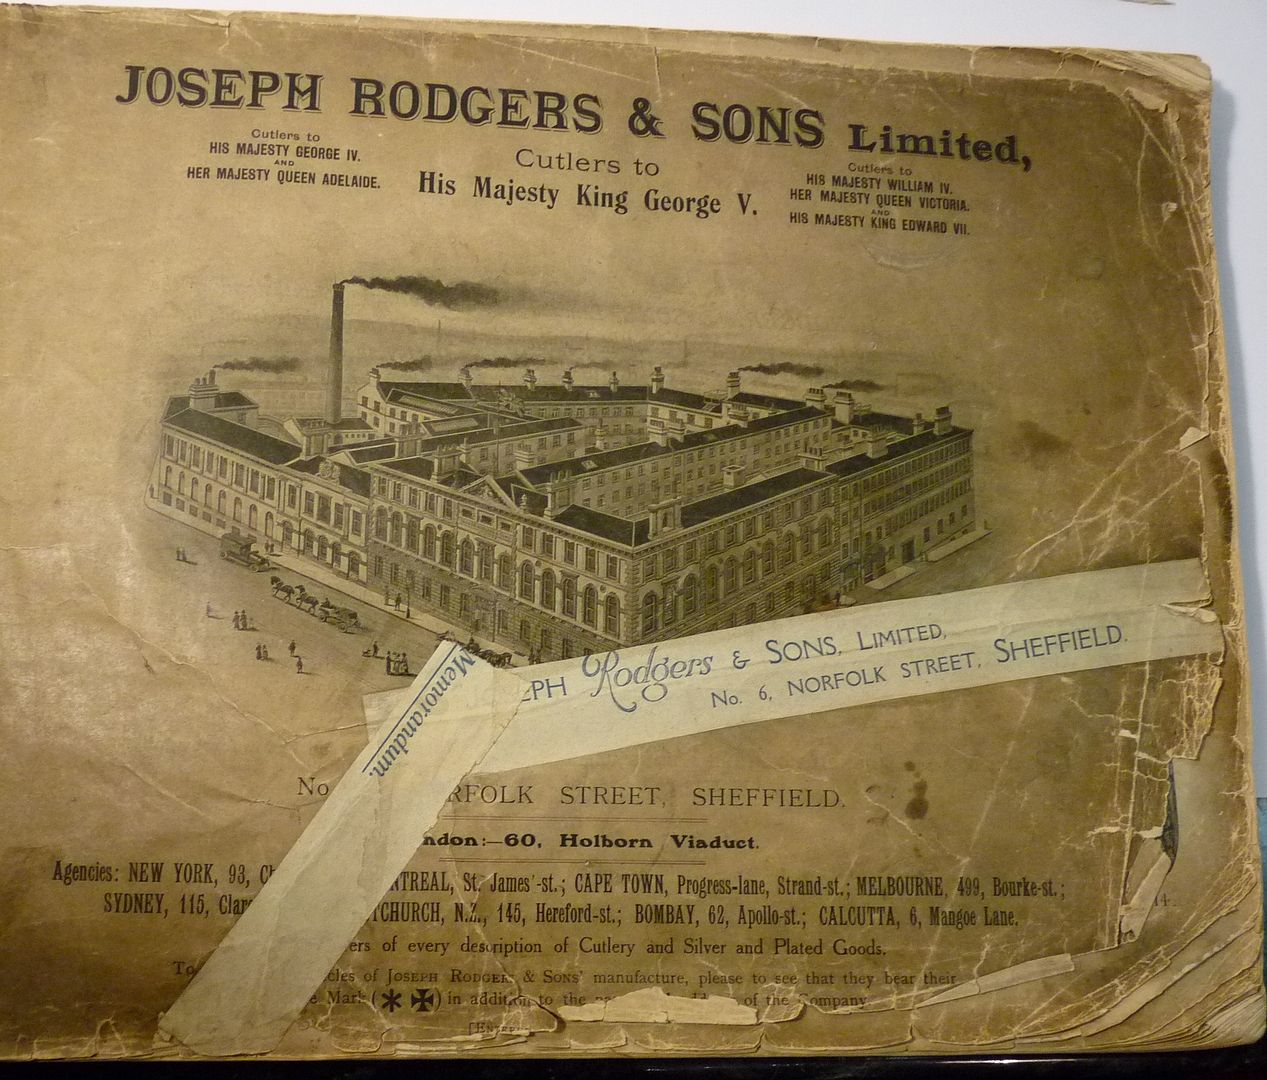 JOSEPH RODGERS & SONS Limited,
Cutlers to
HIS MAJESTY GEORGE IV.
AND
HER MAJESTY QUEEN ADELAIDE.
Cutlers to
His Majesty King George V.
Cutlers to
HIS MAJESTY WILLIAM IV.
HER MAJESTY QUEEN VICTORIA.
AND
HIS MAJESTY KING EDWARD VII.
EPH Rodgers & SONS, LIMITED,
No. 6, NORFOLK STREET, SHEFFIELD.
Memorandum.
No RFOLK STREET, SHEFFIELD.
ndon:—60, Holborn Viaduct.
Agencies: NEW YORK, 93, Ch NTREAL, St. James'-st.; CAPE TOWN, Progress-lane, Strand-st.; MELBOURNE, 499, Bourke-st.;
SYDNEY, 115, Clare TCHURCH, N.Z., 145, Hereford-st.; BOMBAY, 62, Apollo-st.; CALCUTTA, 6, Mangoe Lane.
ers of every description of Cutlery and Silver and Plated Goods.
To cles of JOSEPH RODGERS & SONS' manufacture, please to see that they bear their
e Mark (✱ ✠) in addition to the of the Company
14.